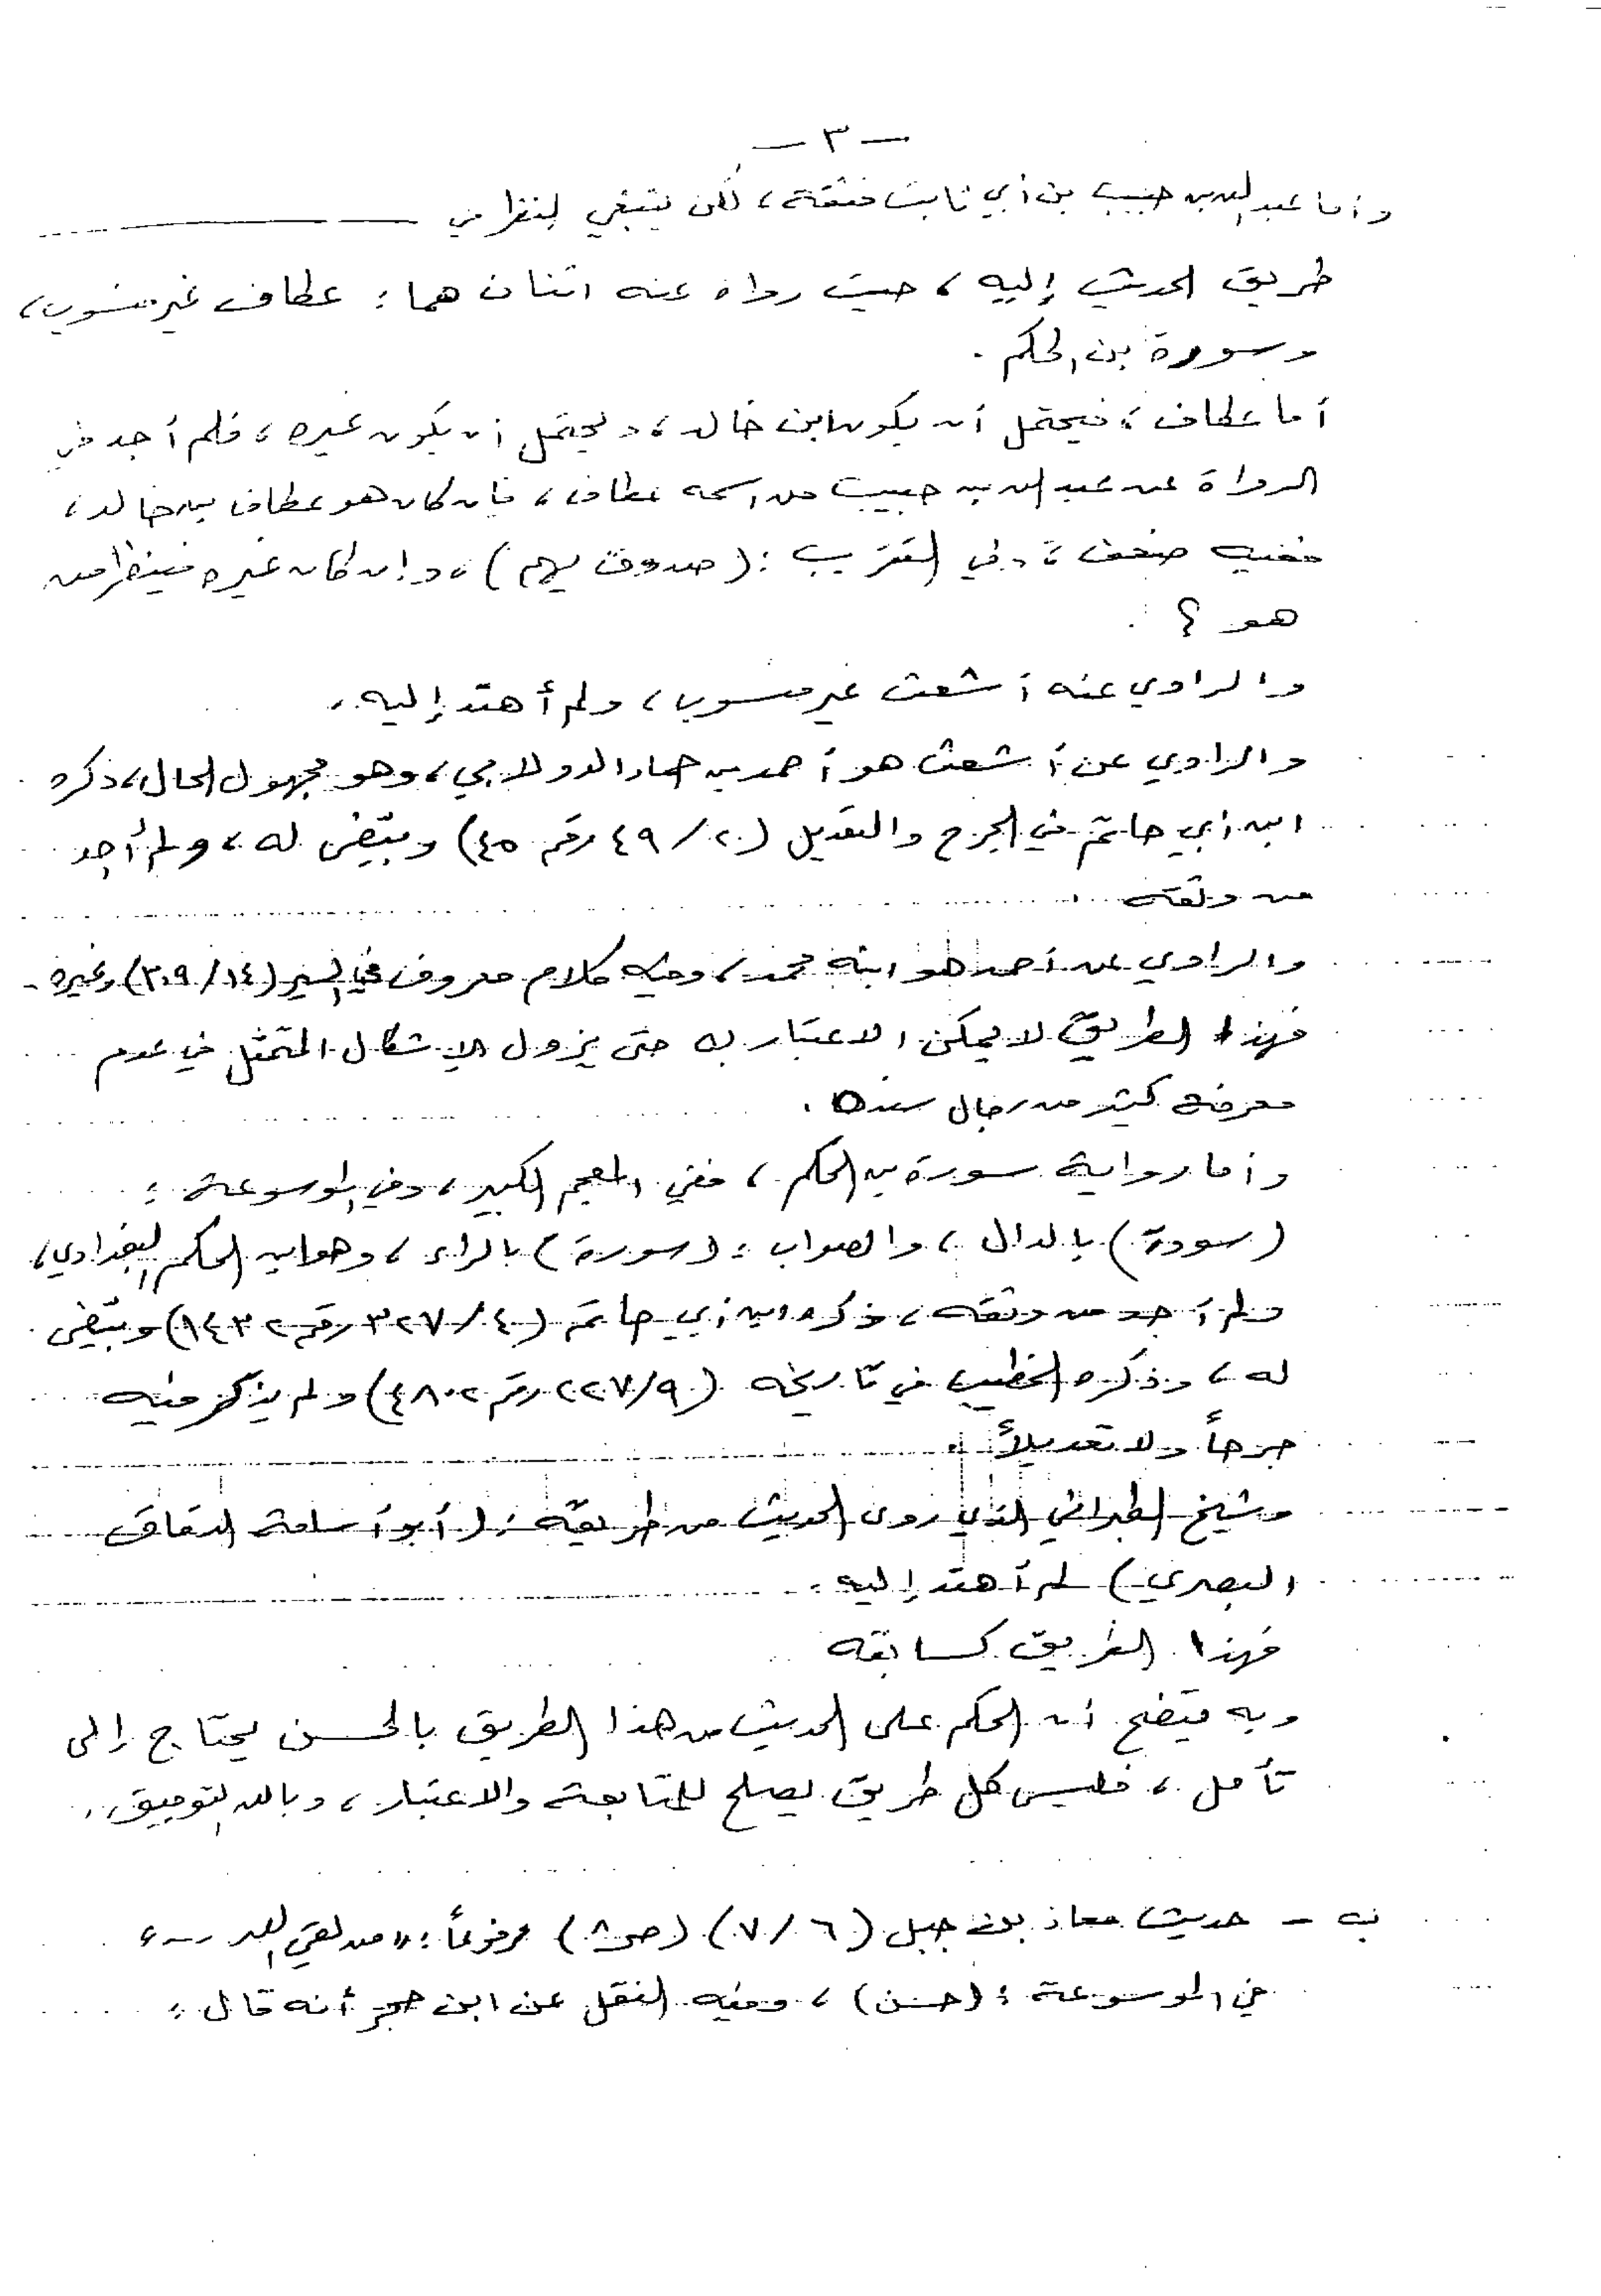 — ٣ —
وأما عبد الله بن حبيب بن أبي ثابت فثقة، لكن ينبغي النظر في
طريق الحديث إليه، حيث رواه عنه اثنان هما: عطاف غير منسوب،
وسورة بن الحكم.
أما عطاف، فيحتمل أن يكون ابن خالد، ويحتمل أن يكون غيره، فلم أجد في
الرواة عن عبد الله بن حبيب من اسمه عطاف، فإن كان هو عطاف بن خالد،
ففيه ضعف، وفي التقريب: (صدوق يهم)، وإن كان غيره فينظر من
هو؟
والراوي عنه أشعث غير منسوب، ولم أهتد إليه.
والراوي عن أشعث هو أحمد بن حماد الدولابي، وهو مجهول الحال، ذكره
ابن أبي حاتم في الجرح والتعديل (٢/٤٩ رقم ٤٥) وبيّض له، ولم أجد
من وثقه.
والراوي عن أحمد هو ابنه محمد، وفيه كلام معروف في السير (١٤/٣٠٩) وغيره.
فهذا الطريق لا يمكن الاعتبار به حتى يزول الإشكال المتمثل في عدم
معرفة كثير من رجال سنده.
وأما رواية سورة بن الحكم، ففي المعجم الكبير، وفي الموسوعة:
(سودة) بالدال، والصواب: (سورة) بالراء، وهو ابن الحكم البغدادي،
ولم أجد من وثقه، ذكره ابن أبي حاتم (٤/٣٢٧ رقم ١٤٣٢) وبيّض
له، وذكره الخطيب في تاريخه (٩/٢٢٧ رقم ٤٨٠٢) ولم يذكر فيه
جرحاً ولا تعديلاً.
وشيخ الطبراني الذي روى الحديث من طريقه: (أبو أسامة الدقاق
البصري) لم أهتد إليه.
فهذا الطريق كسابقه
وبه يتضح أن الحكم على الحديث من هذا الطريق بالحسن يحتاج إلى
تأمل، فليس كل طريق يصلح للمتابعة والاعتبار، وبالله التوفيق،،
ب - حديث معاذ بن جبل (٦/٧) مرفوعاً: "من لقي الله ...،
في الموسوعة: (حسن)، وفيه النقل عن ابن حجر أنه قال: